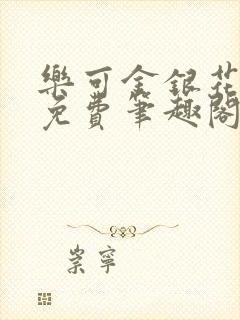 樂可金銀花
免費筆趣閣
崇寧